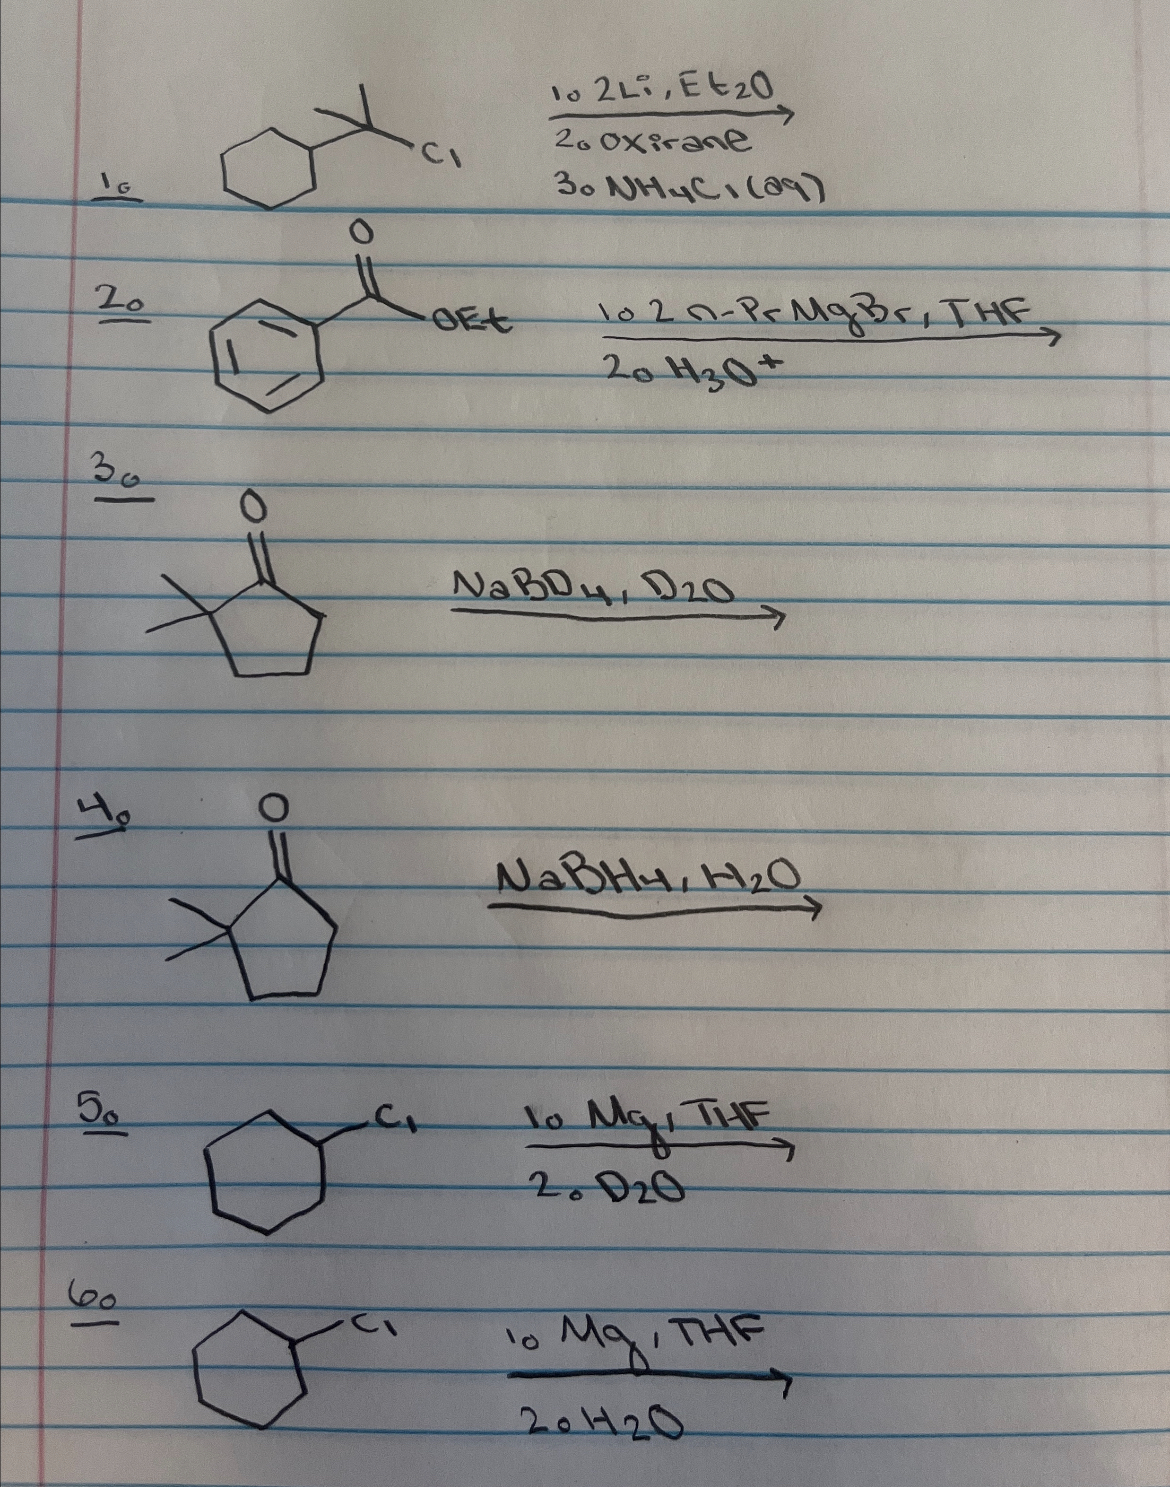 1. 2Li, Et2O
Cl
2. oxirane
1.
3. NH4Cl (aq)
O
2.
OEt
1. 2 n-PrMgBr, THF
2. H3O+
3.
O
NaBD4, D2O
4.
O
NaBH4, H2O
5.
Cl
1. Mg, THF
2. D2O
6.
Cl
1. Mg, THF
2. H2O